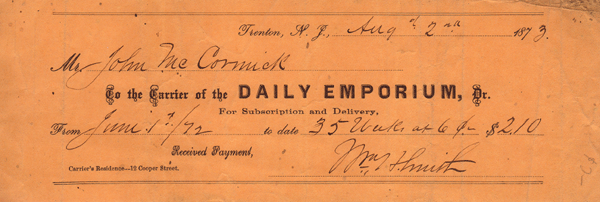 Trenton, N. J., Aug st 2nd 1873.
Mr John Mc Cormick
To the Carrier of the DAILY EMPORIUM, Dr.
For Subscription and Delivery,
From June 1st/72 to date 35 Weeks at 6 c $2.10
Received Payment,
Wm H Smith
Carrier's Residence—12 Cooper Street.